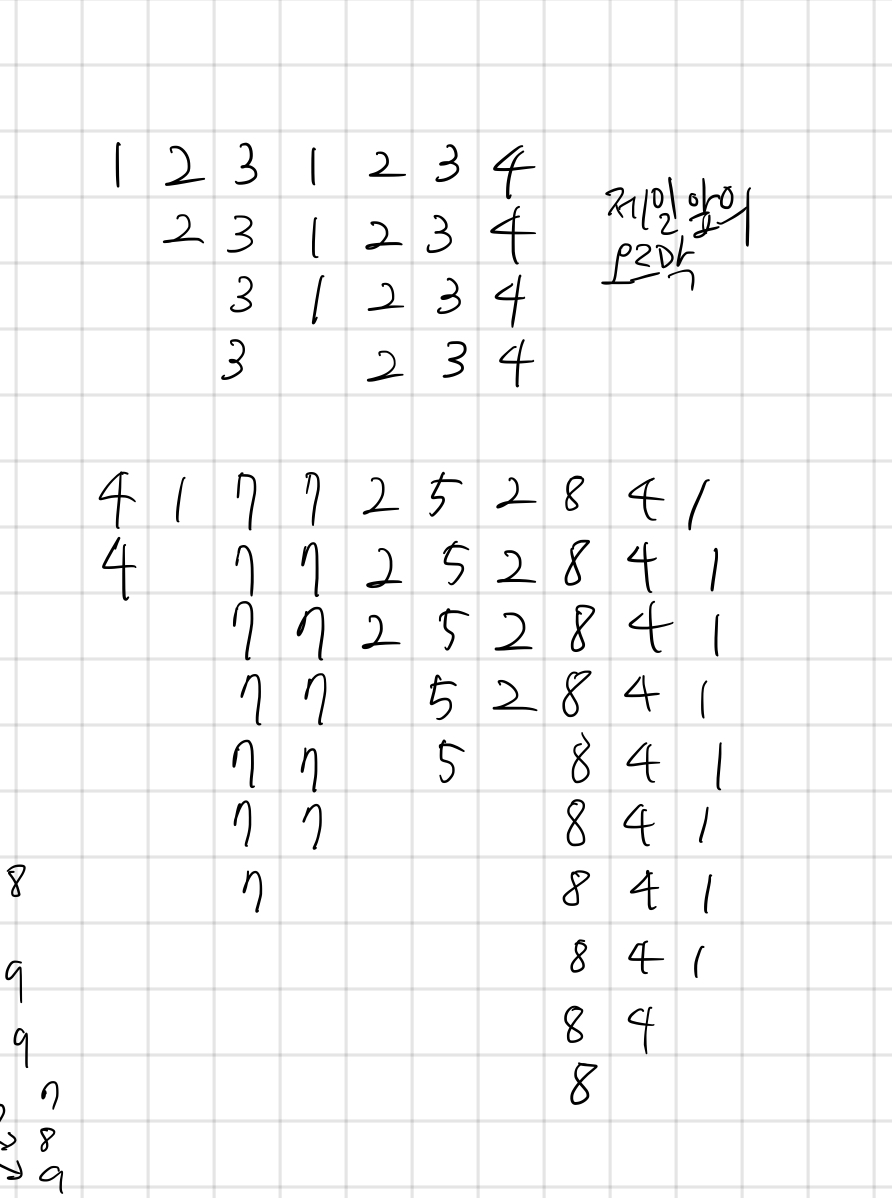 1 2 3 1 2 3 4
2 3 1 2 3 4
3 1 2 3 4
3 2 3 4
제일 앞의
오르막
4 1 7 7 2 5 2 8 4 1
4 7 7 2 5 2 8 4 1
7 7 2 5 2 8 4 1
7 7 5 2 8 4 1
7 7 5 8 4 1
7 7 8 4 1
7 8 4 1
8 4 1
8 4
8
8
9
9
7
8
9